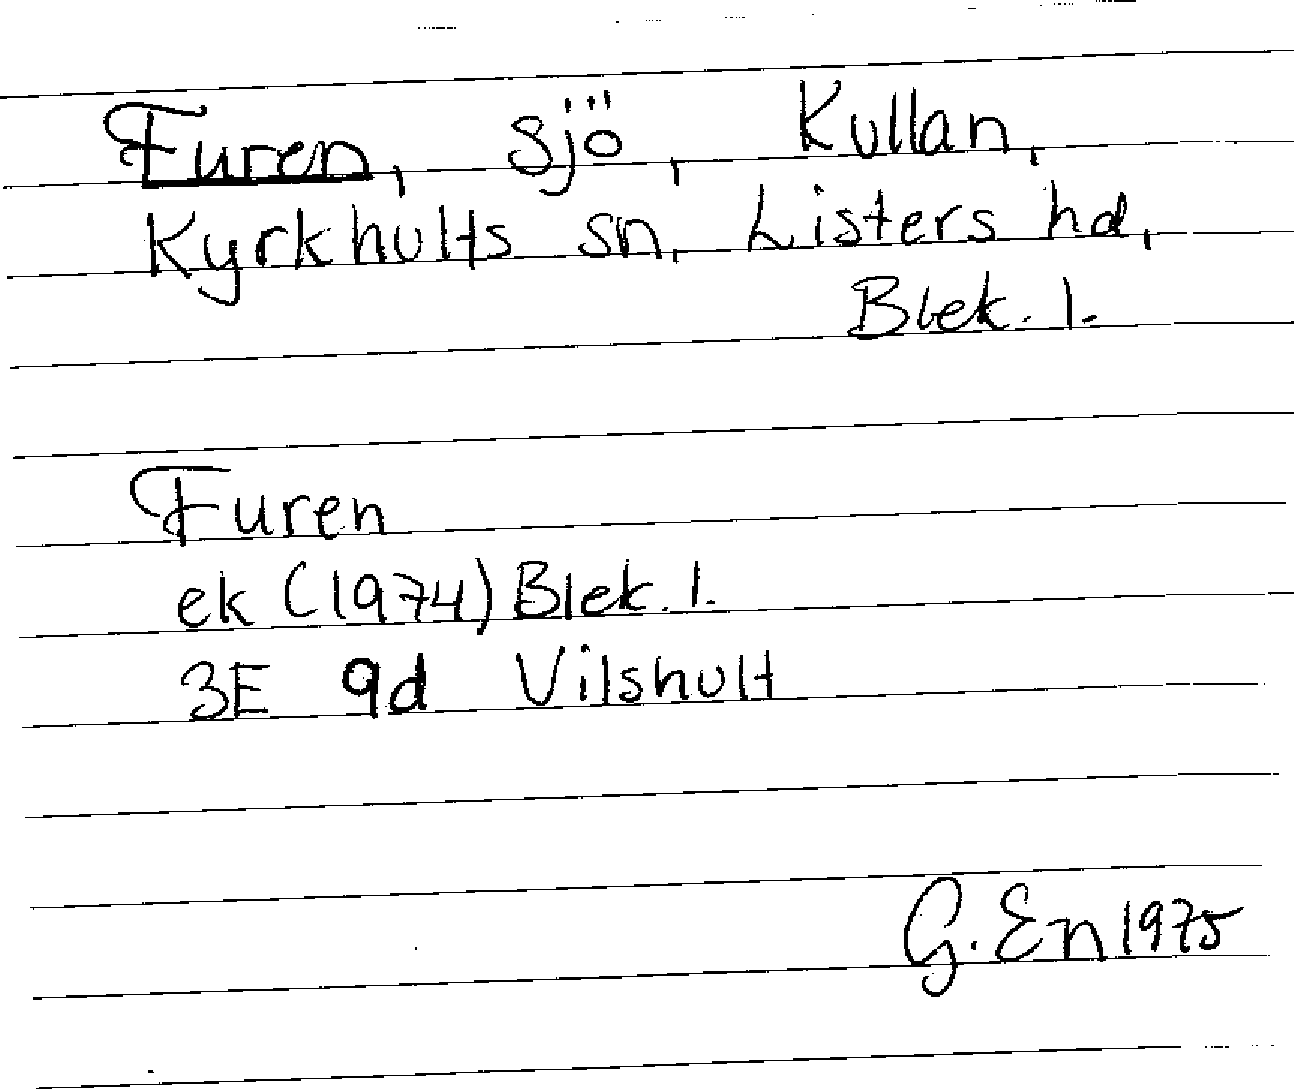 Furen, sjö, Kullan,
Kyrkhults sn, Listers hd,
Blek. l.
Furen
ek (1974) Blek. l.
3E 9d Vilshult
G. En 1975